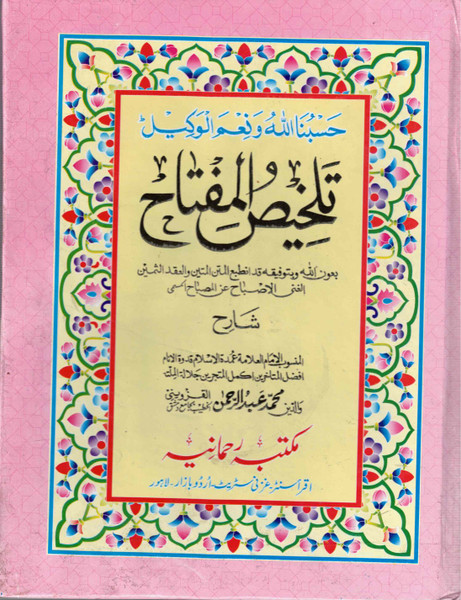 حَسْبُنَا اللهُ وَنِعْمَ الْوَكِيْلُ
تلخیص المفتاح
بعون الله وبتوفيقه قد انطبع المتن المتين والعقد الثمين
الغنى الاصباح عن المصباح المسمى
شارح
المنسوب الامام العلامة عمدة الاسلام قدوة الانام
افضل المتاخرين اكمل المتبحرين جلالة الملة
والدين محمد عبد الرحمن القزوينى خطيب جامع دمشق
مکتبہ رحمانیہ
اقرأ سنٹر غزنی سٹریٹ، اردو بازار، لاہور